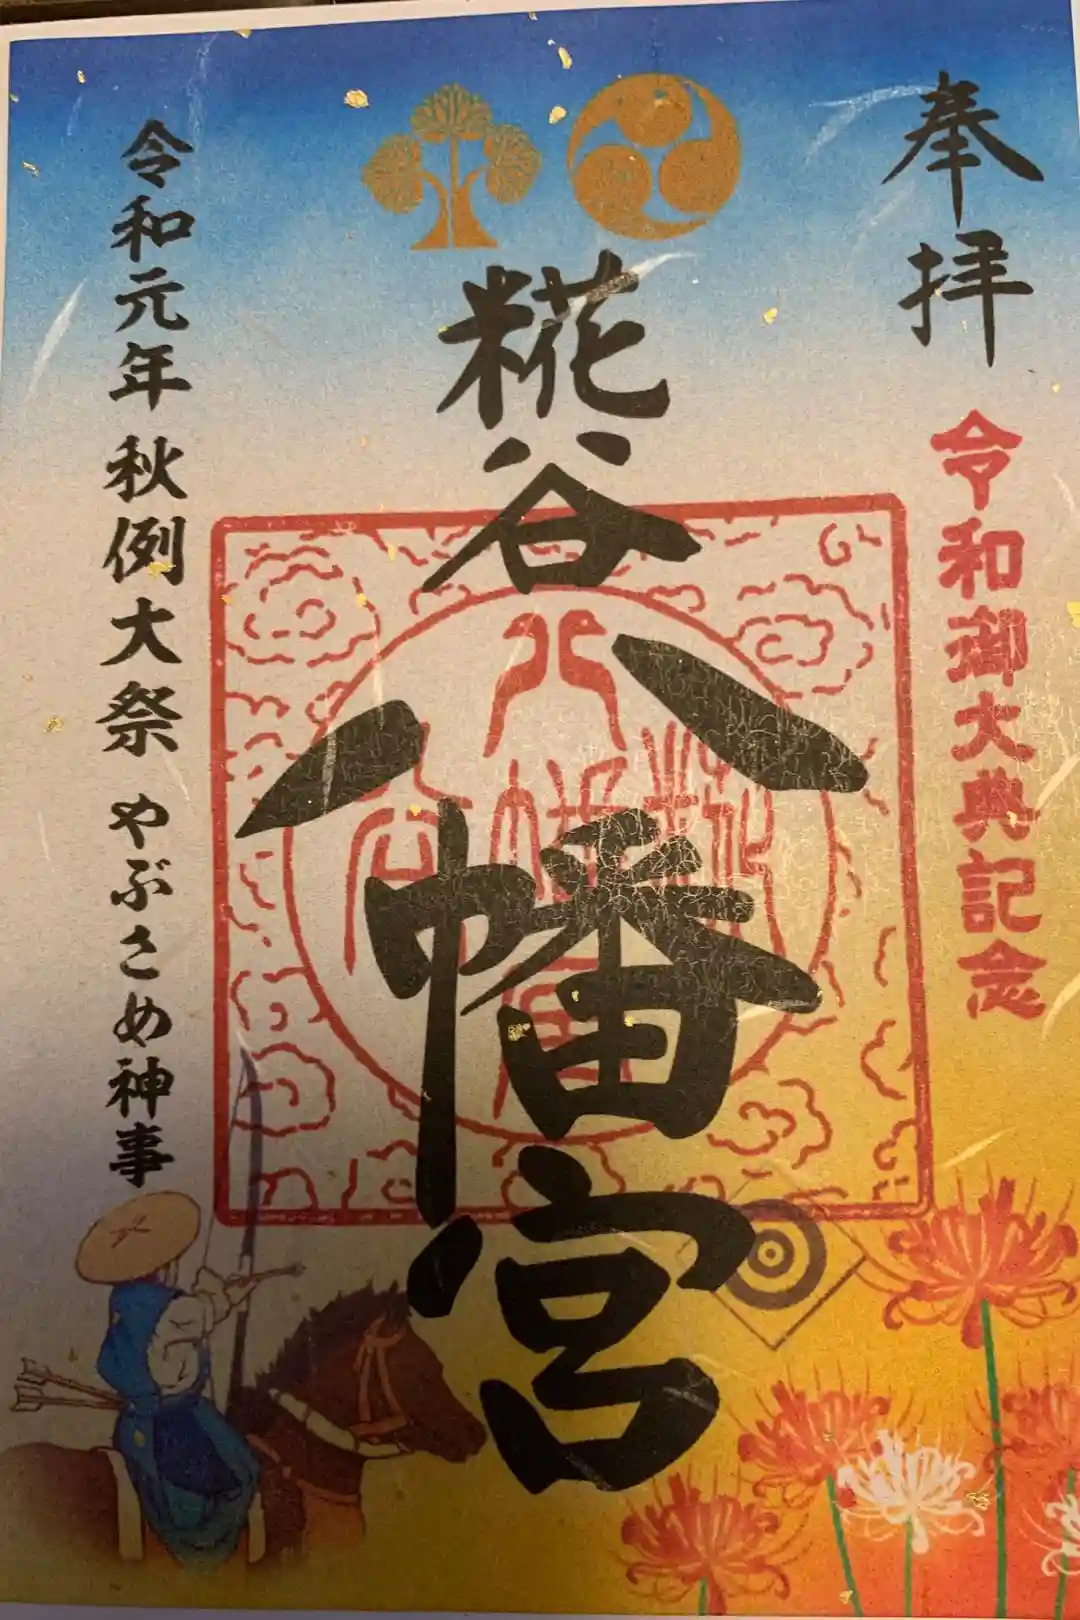 奉拝
令和御大典記念
糀谷八幡宮
令和元年 秋例大祭 やぶさめ神事